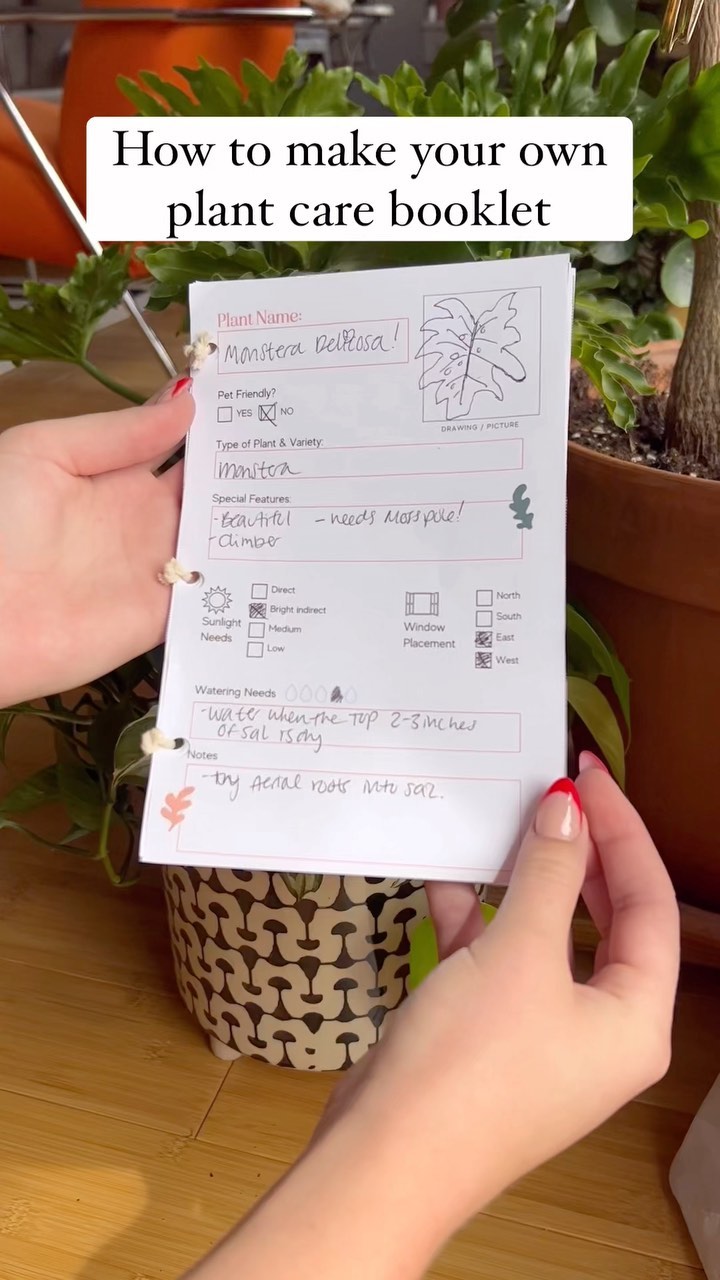 How to make your own
plant care booklet
Plant Name:
Monstera Deliciosa!
DRAWING / PICTURE
Pet Friendly?
YES NO
Type of Plant & Variety:
Monstera
Special Features:
-Beautiful - needs Moss pole!
-Climber
Sunlight
Needs
Direct
Bright Indirect
Medium
Low
Window
Placement
North
South
East
West
Watering Needs
-Water when the Top 2-3 inches
of soil is dry
Notes
- Aerial roots into soil.